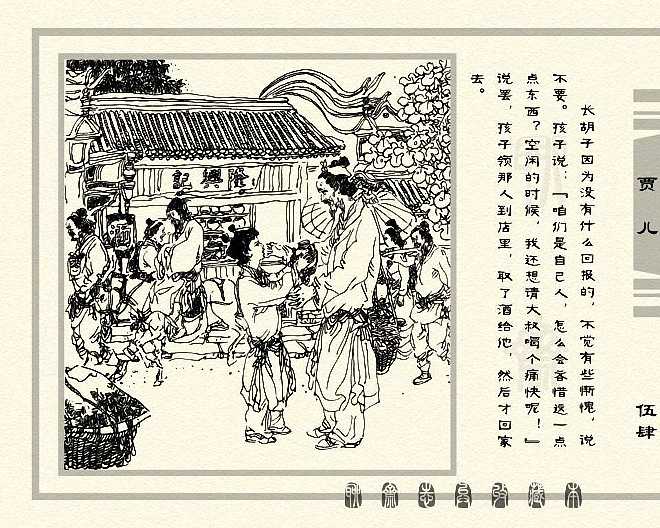 长胡子因为没有什么回报的，不觉有些惭愧，说
不要。孩子说：『咱们是自己人，怎么会吝惜这一点
点东西？空闲的时候，我还想请大叔喝个痛快呢！』
说罢，孩子领那人到店里，取了酒给他，然后才回家
去。
贾儿
伍肆
隆興記
酒